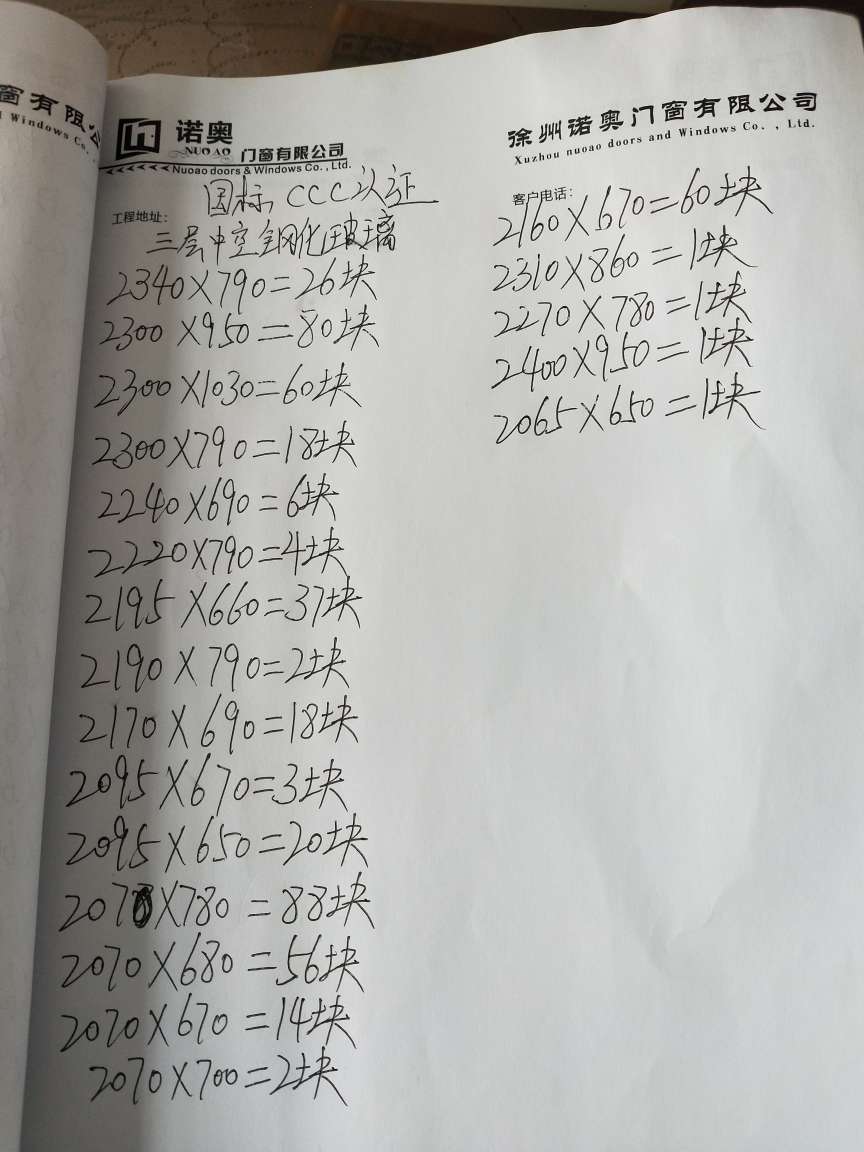 窗有限公
l Windows Co
诺奥
NUOAO 门窗有限公司
Nuoao doors & Windows Co., Ltd.
徐州诺奥门窗有限公司
Xuzhou nuoao doors and Windows Co., Ltd.
工程地址：
国标CCC认证
三层中空钢化玻璃
2340×790=26块
2300×950=80块
2300×1030=60块
2300×790=18块
2240×690=6块
2220×790=4块
2195×660=37块
2190×790=2块
2170×690=18块
2095×670=3块
2095×650=20块
2070×780=88块
2070×680=56块
2070×670=14块
2070×700=2块
客户电话：
2160×670=60块
2310×860=1块
2270×780=1块
2400×950=1块
2065×650=1块